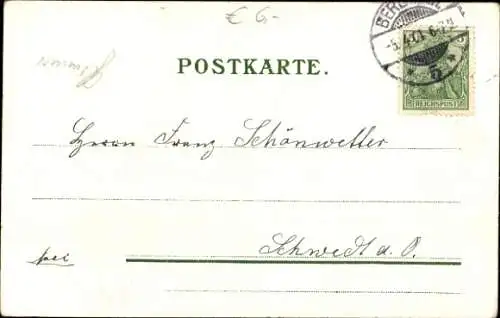 € 6.-
POSTKARTE.
5
REICHSPOST
Herrn Franz Schönwetter
Schwedt a. O.
frei